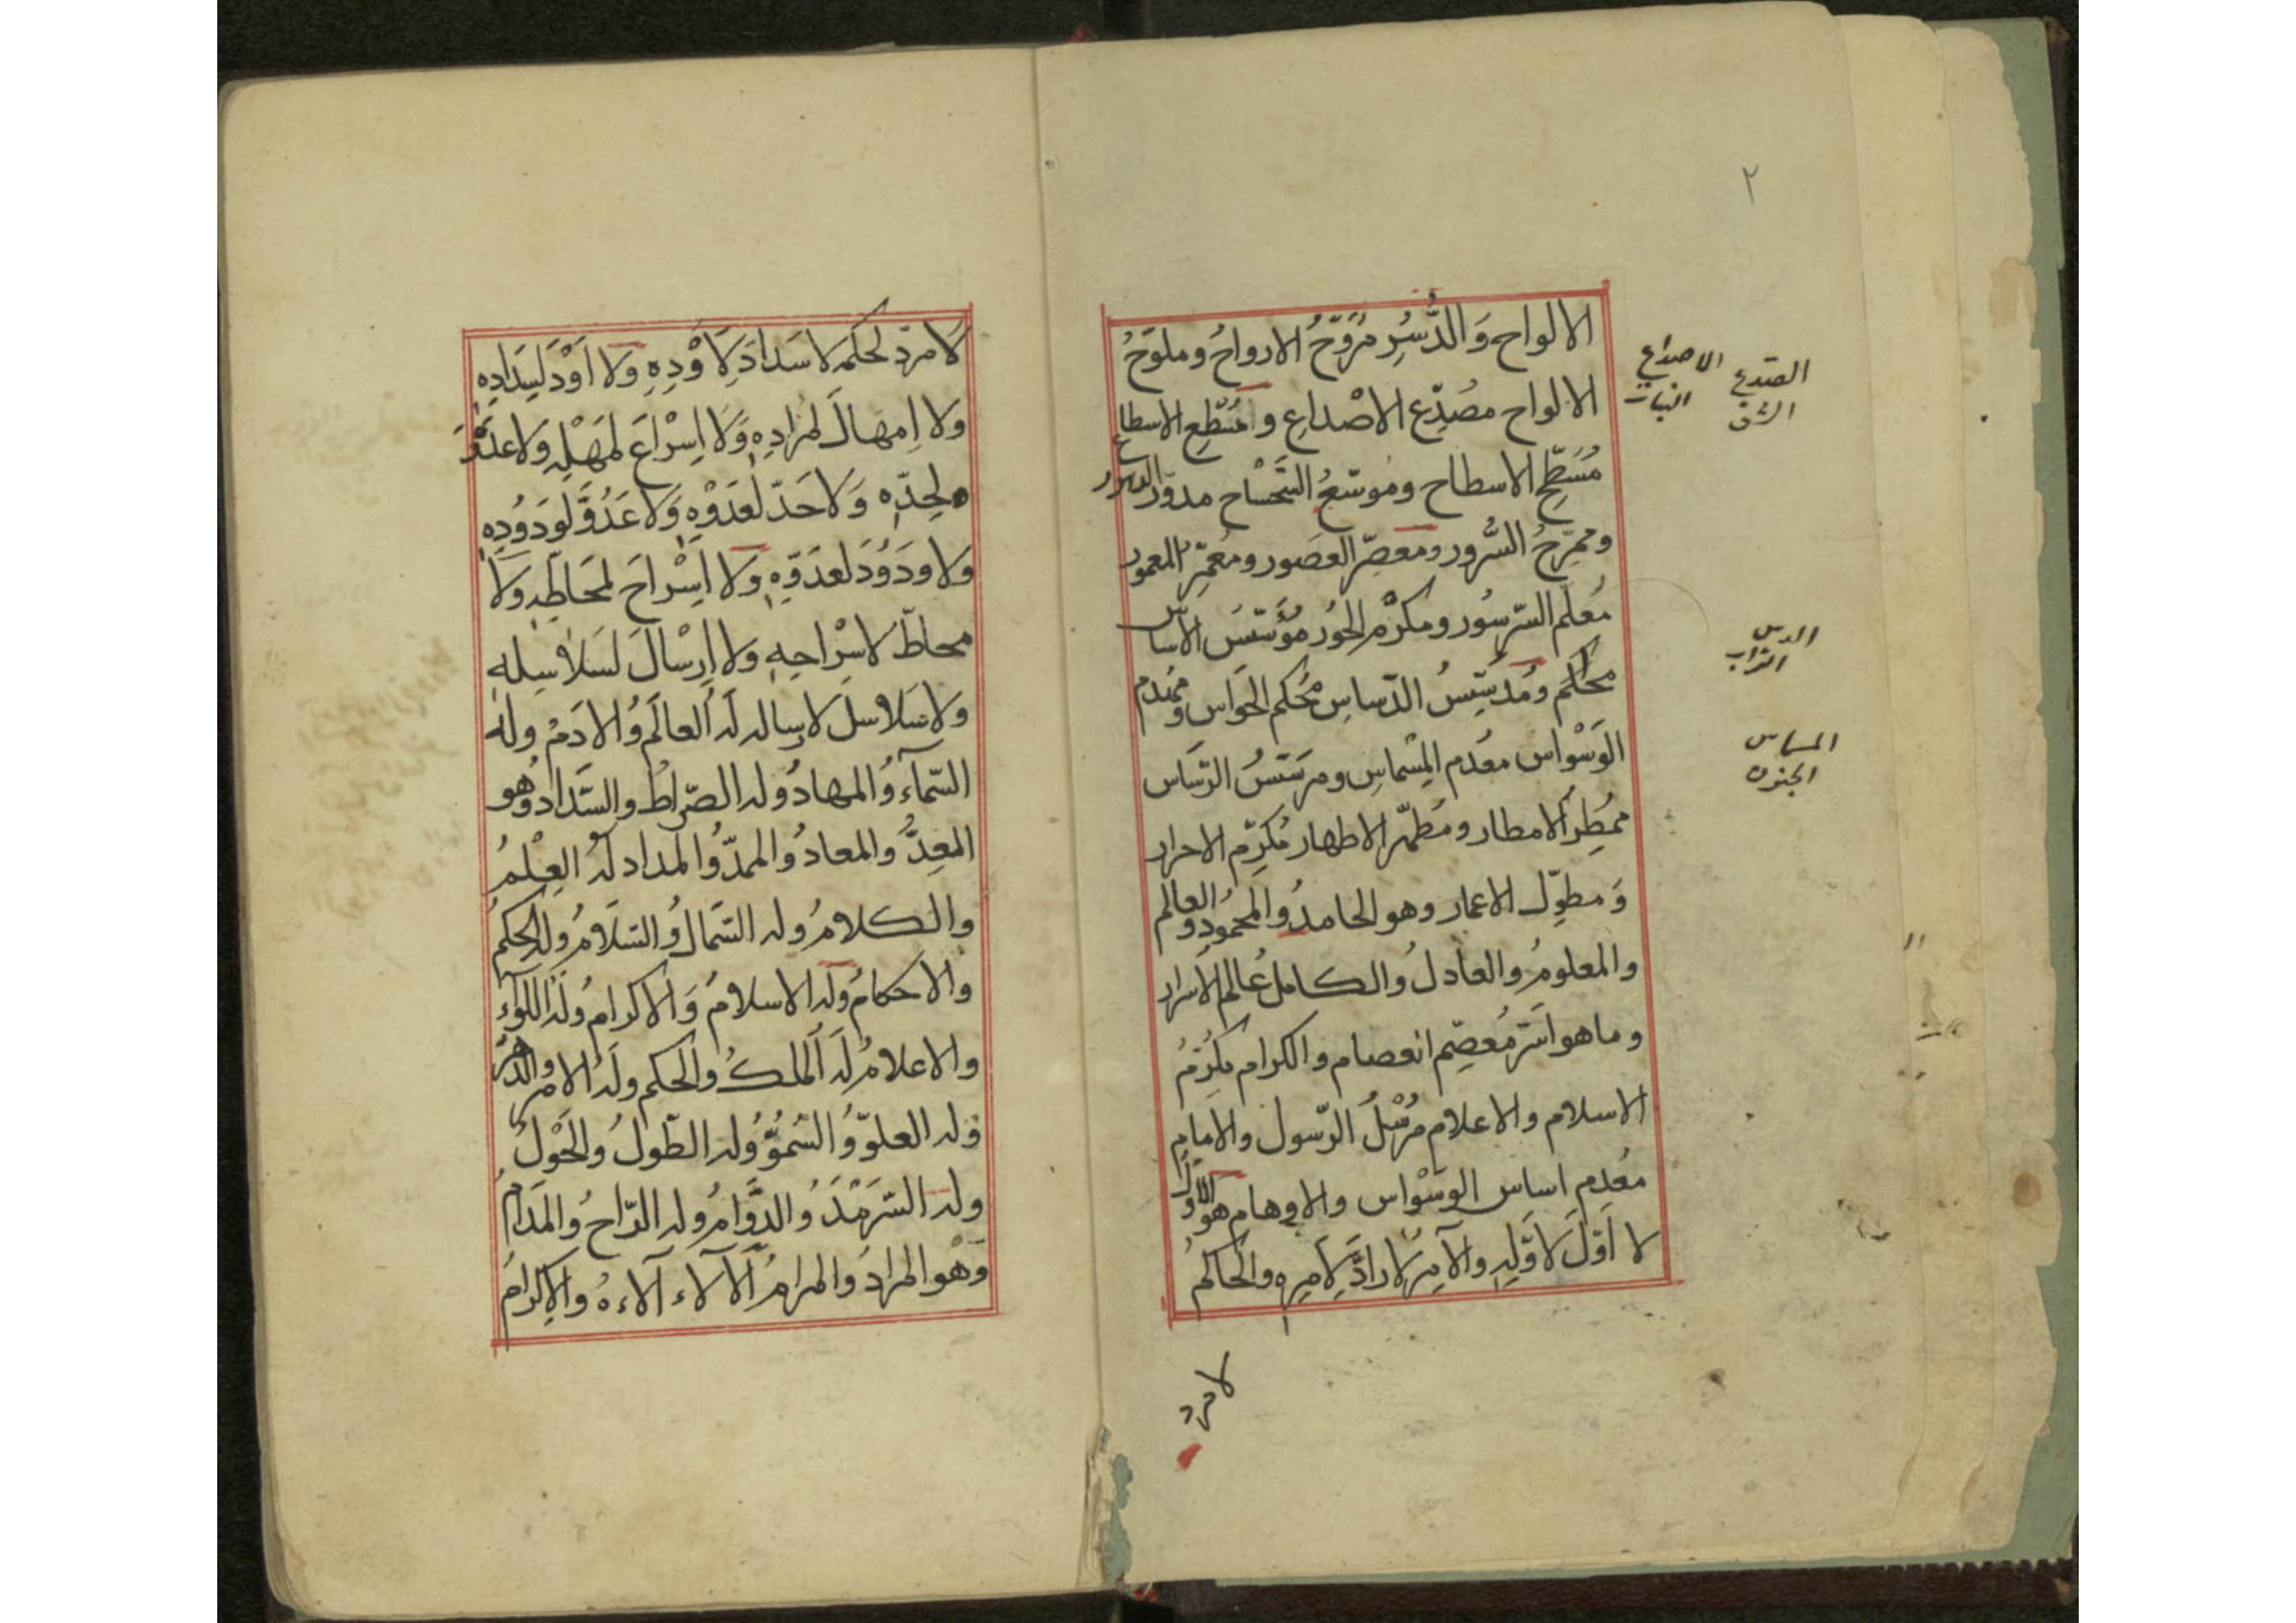 ٢
الالواح وَالدُّسُرِ مُرَوّحُ الارواحُ وملوّحُ
الالواح مصَدّع الاصْداعِ و مُسَطِّع الاسطاع
مُسَطّح الاسطاح وموسّعُ السَّحْساح مدوّر الدهور
ومُمَرّحُ السُّرور ومعصّر العصُور ومُعَمِّر المعمور
مُعلم السّرسُور ومكرّم الحُور مُؤسّسُ الاساس
محكم ومُدسّسُ الدّساسِ محُكم الحَواس ومُهدم
الوَسْواس معُدم المِسْماسِ ومرسّسُ الرسَاس
ممُطِر الامطار ومُطهّر الاطهار مُكرّم الاحرار
وَمطوّل الاعمار وهو الحامدُ والمحمُود والعالم
والمعلومُ والعادلُ والكاملُ عالم الاسرار
وما هو اسَرّ مُعصّم العصام والكرام مكرّمُ
الاسلام والاعلام مُرْسلُ الرّسول والامام
معُدِم اساس الوسْواس والاوهام هو الاوّلُ
لا اوّلَ لاوّلِهِ والآمرُ لا رادّ لامرِه والحاكم
لا مرد
الصدع
الشق
الاصداع
النبات
الدس
التراب
المسماس
الجنون
لا مردّ لحكمه لا سَدادَ لِاَوْدِهِ ولا اَوْدَ لِسَدادِهِ
ولا اِمهالَ لمُرادِهِ وَلا اِسْراعَ لمَهْلِهِ ولا عَدْوَ
لحِدّه وَلا حَدّ لعَدْوِهِ وَلا عَدُوَّ لوَدوُدِهِ
ولا وَدوُدَ لعدَوّهِ ولا اِسْراحَ لمحَاطّهِ ولا
محاطّ لاسْراحِهِ ولا اِرسالَ لسَلاسِلِهِ
ولا سَلاسلَ لارساله لهُ العالَمُ والادَمُ ولَهُ
السّمآءُ والمهادُ وله الصّراطُ والسَّدادُ وهو
المُعِدُّ والمعادُ والممدُّ والمداد لهُ العِلْمُ
والكلامُ وله الكمالُ والسّلامُ وله الحكمُ
والاحكامُ وله الاسلامُ وَالاكرامُ ولهُ اللوآءُ
والاعلامُ لهُ الملكُ والحكم ولهُ الامر والدهرُ
وله العلوُّ والسُّموُّ وله الطّولُ والحَوْلُ
وله السّرمَدُ والدَّوامُ وله الرّاحُ والمدَامُ
وَهْو المرادُ والمرامُ الآلاء آلاءهُ والاِكرامُ